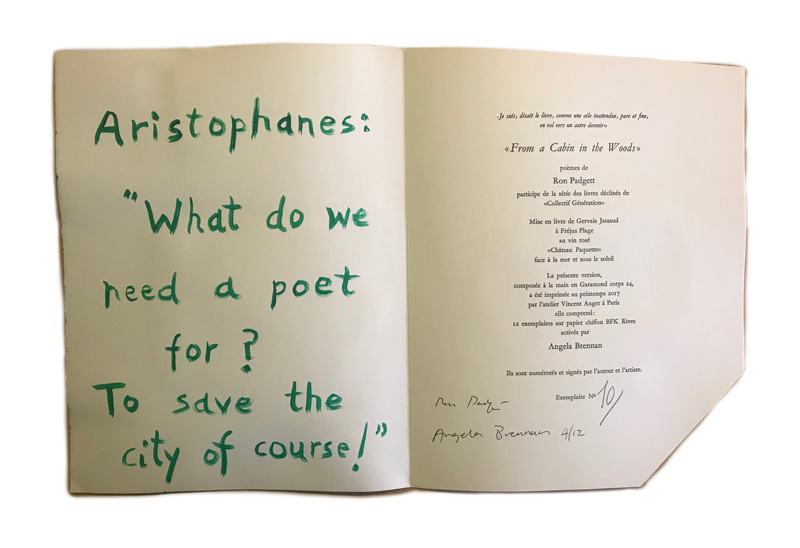 Aristophanes:
"What do we
need a poet
for?
To save the
city of course!"
«Je suis, disait le livre, comme une aile inattendue, pure et fine,
en vol vers un autre devenir»
«From a Cabin in the Woods»
poèmes de
Ron Padgett
participe de la série des livres déclinés de
«Collectif Génération»
Mise en livre de Gervais Jassaud
à Fréjus Plage
au vin rosé
«Château Paquette»
face à la mer et sous le soleil
La présente version,
composée à la main en Garamond corps 24,
a été imprimée au printemps 2017
par l'atelier Vincent Auger à Paris
elle comprend:
12 exemplaires sur papier chiffon BFK Rives
activés par
Angela Brennan
Ils sont numérotés et signés par l'auteur et l'artiste.
Exemplaire No 10/
Ron Padgett
Angela Brennan 4/12